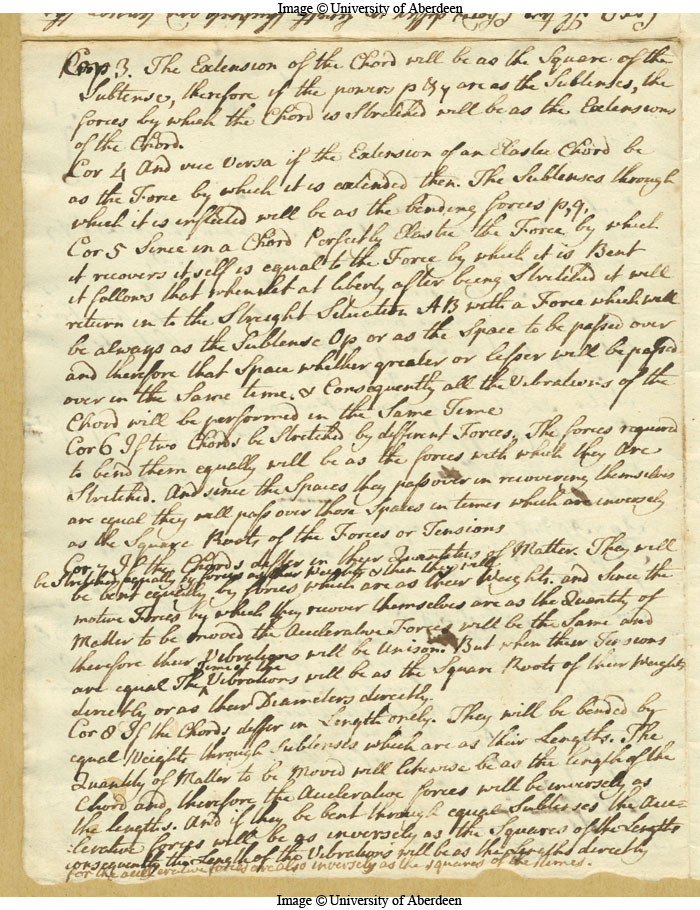 Image © University of Aberdeen
Cor 3. The Extension of the Chord will be as the Square of the
Subtense, therefore if the powers p & q are as the Subtenses, the
forces by which the Chord is Stretched will be as the Extensions
of the Chord.
Cor 4 And vice Versa if the Extension of an Elastic Chord be
as the Force by which it is extended then. The Subtenses through
which it is inflected will be as the bending forces p, q.
Cor 5 Since in a Chord Perfectly Elastic the Force by which
it recovers it self is equal to the Force by which it is Bent
it follows that when let at liberty after being Stretched it will
return in to the Streight Situation AB with a Force which will
be always as the Subtense Op or as the Space to be passed over
and therefore that Space whether greater or lesser will be passed
over in the Same time. & Consequently all the Vibrations of the
Chord will be performed in the Same Time
Cor 6 If two Chords be Stretched by different Forces, The forces required
to bend them equally will be as the forces with which they Are
Stretched. And since the Spaces they pass over in recovering themselves
are equal they will pass over those Spaces in times which are inversely
as the Square Roots of the Forces or Tensions
Cor. 7 If the Chords differ in their Quantities of Matter. They will
be Stretched equally by forces as their Weights & then they will
be bent equally by forces which are as their Weights. and Since the
motive Forces by which they recover themselves are as the Quantity of
Matter to be moved the Accelerative Forces will be the Same and
therefore their Vibrations will be Unison. But when their Tensions
time of the
are equal The Vibrations will be as the Square Roots of their Weights
directly or as their Diameters directly.
Cor 8 If the Chords differ in Length onely. They will be bended by
equal Weights through Subtenses which are as their Lengths. The
Quantity of Matter to be Moved will likewise be as the length of the
Chord and, therefore the Accelerative forces will be inversely as
the lengths. And if they be bent through equal Subtenses the Acce-
lerative forces will be as inversely as the Squares of the Lengths
consequently the Length of the Vibrations will be as the Lengths directly
for the accelerative forces are also inversely as the squares of the times.
Image © University of Aberdeen